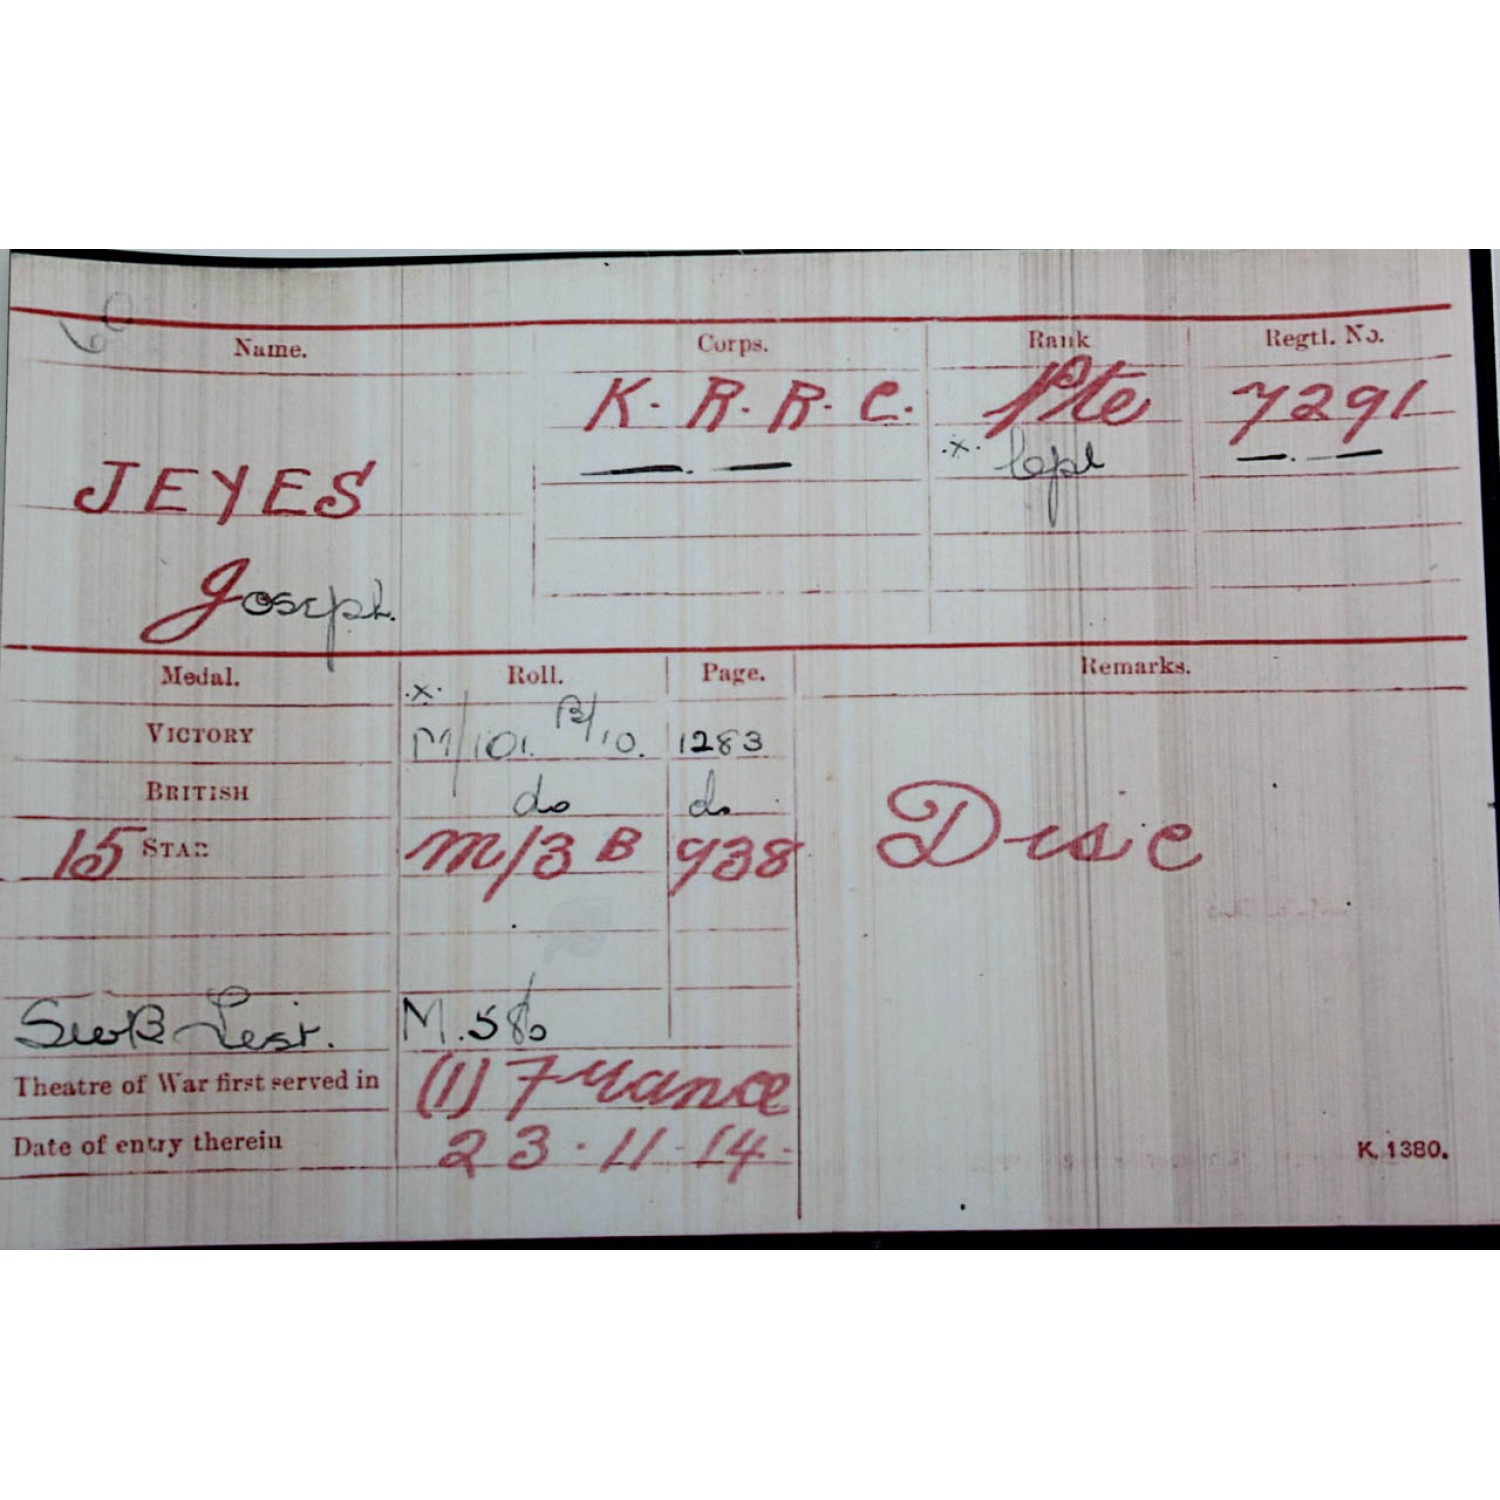 Name. Corps. Rank Regtl. No.
K. R. R. C. Pte 7291
—. — .x. Cpl —. —
JEYES
Joseph.
Medal. Roll. Page. Remarks.
.x.
VICTORY M/101. B/10. 1283
BRITISH do do
15 STAR M/3 B 938 Disc
SWB List. M.580
Theatre of War first served in (1) France
Date of entry therein 23.11.14.
K. 1380.